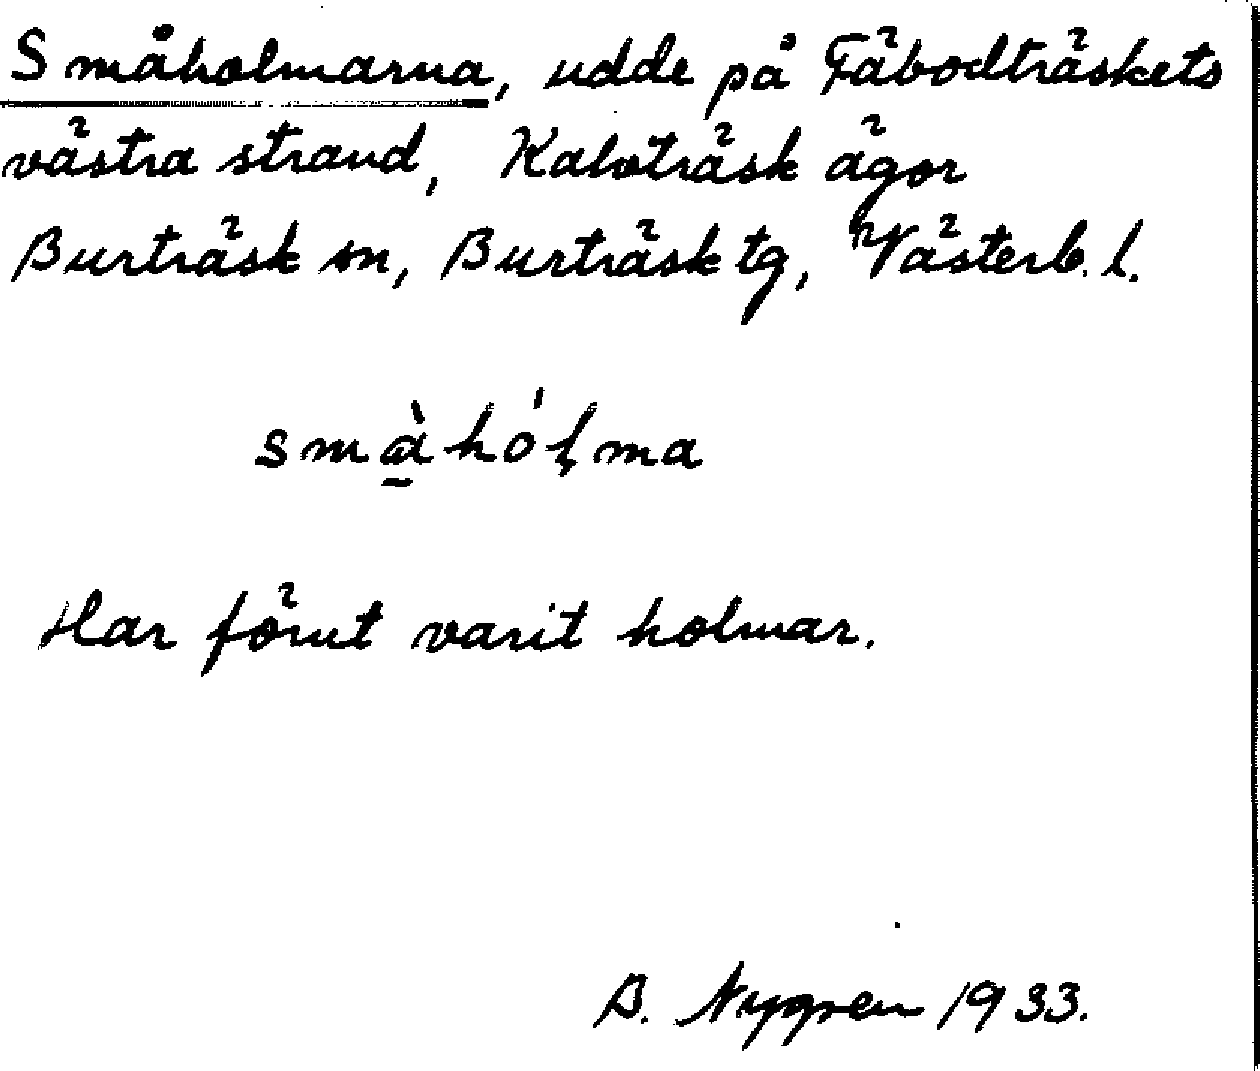 Småholmarna, udde på Fäbodträskets
västra strand, Kalvträsk ägor
Burträsk sn, Burträsk tg, Västerb. l.
småhólma
Har förut varit holmar.
B. Nygren 1933.